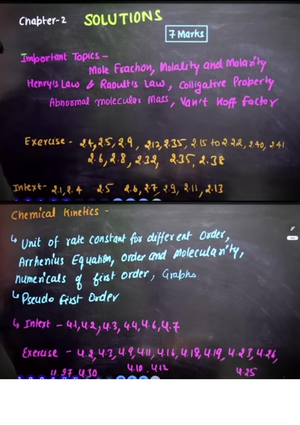 Chapter-2 SOLUTIONS
7 Marks
Important Topics -
Mole Fraction, Molality and Molarity
Henry's Law & Raoult's Law, Colligative Property
Abnormal molecular Mass, Van't Hoff Factor
Exercise - 2.4, 2.5, 2.9, 2.12, 2.35, 2.15 to 2.22, 2.40, 2.41
2.6, 2.8, 2.32, 2.35, 2.38
Intext - 2.1, 2.4 2.5 2.6, 2.7, 2.9, 2.11, 2.13
Chemical Kinetics -
↳ Unit of rate constant for different Order,
Arrhenius Equation, Order and Molecularity,
numericals of first order, Graphs
↳ Pseudo First Order
↳ Intext - 4.1, 4.2, 4.3, 4.4, 4.6, 4.7
Exercise - 4.2, 4.3, 4.9, 4.11, 4.16, 4.18, 4.19, 4.23, 4.26,
4.27 4.30 4.10, 4.12 4.25